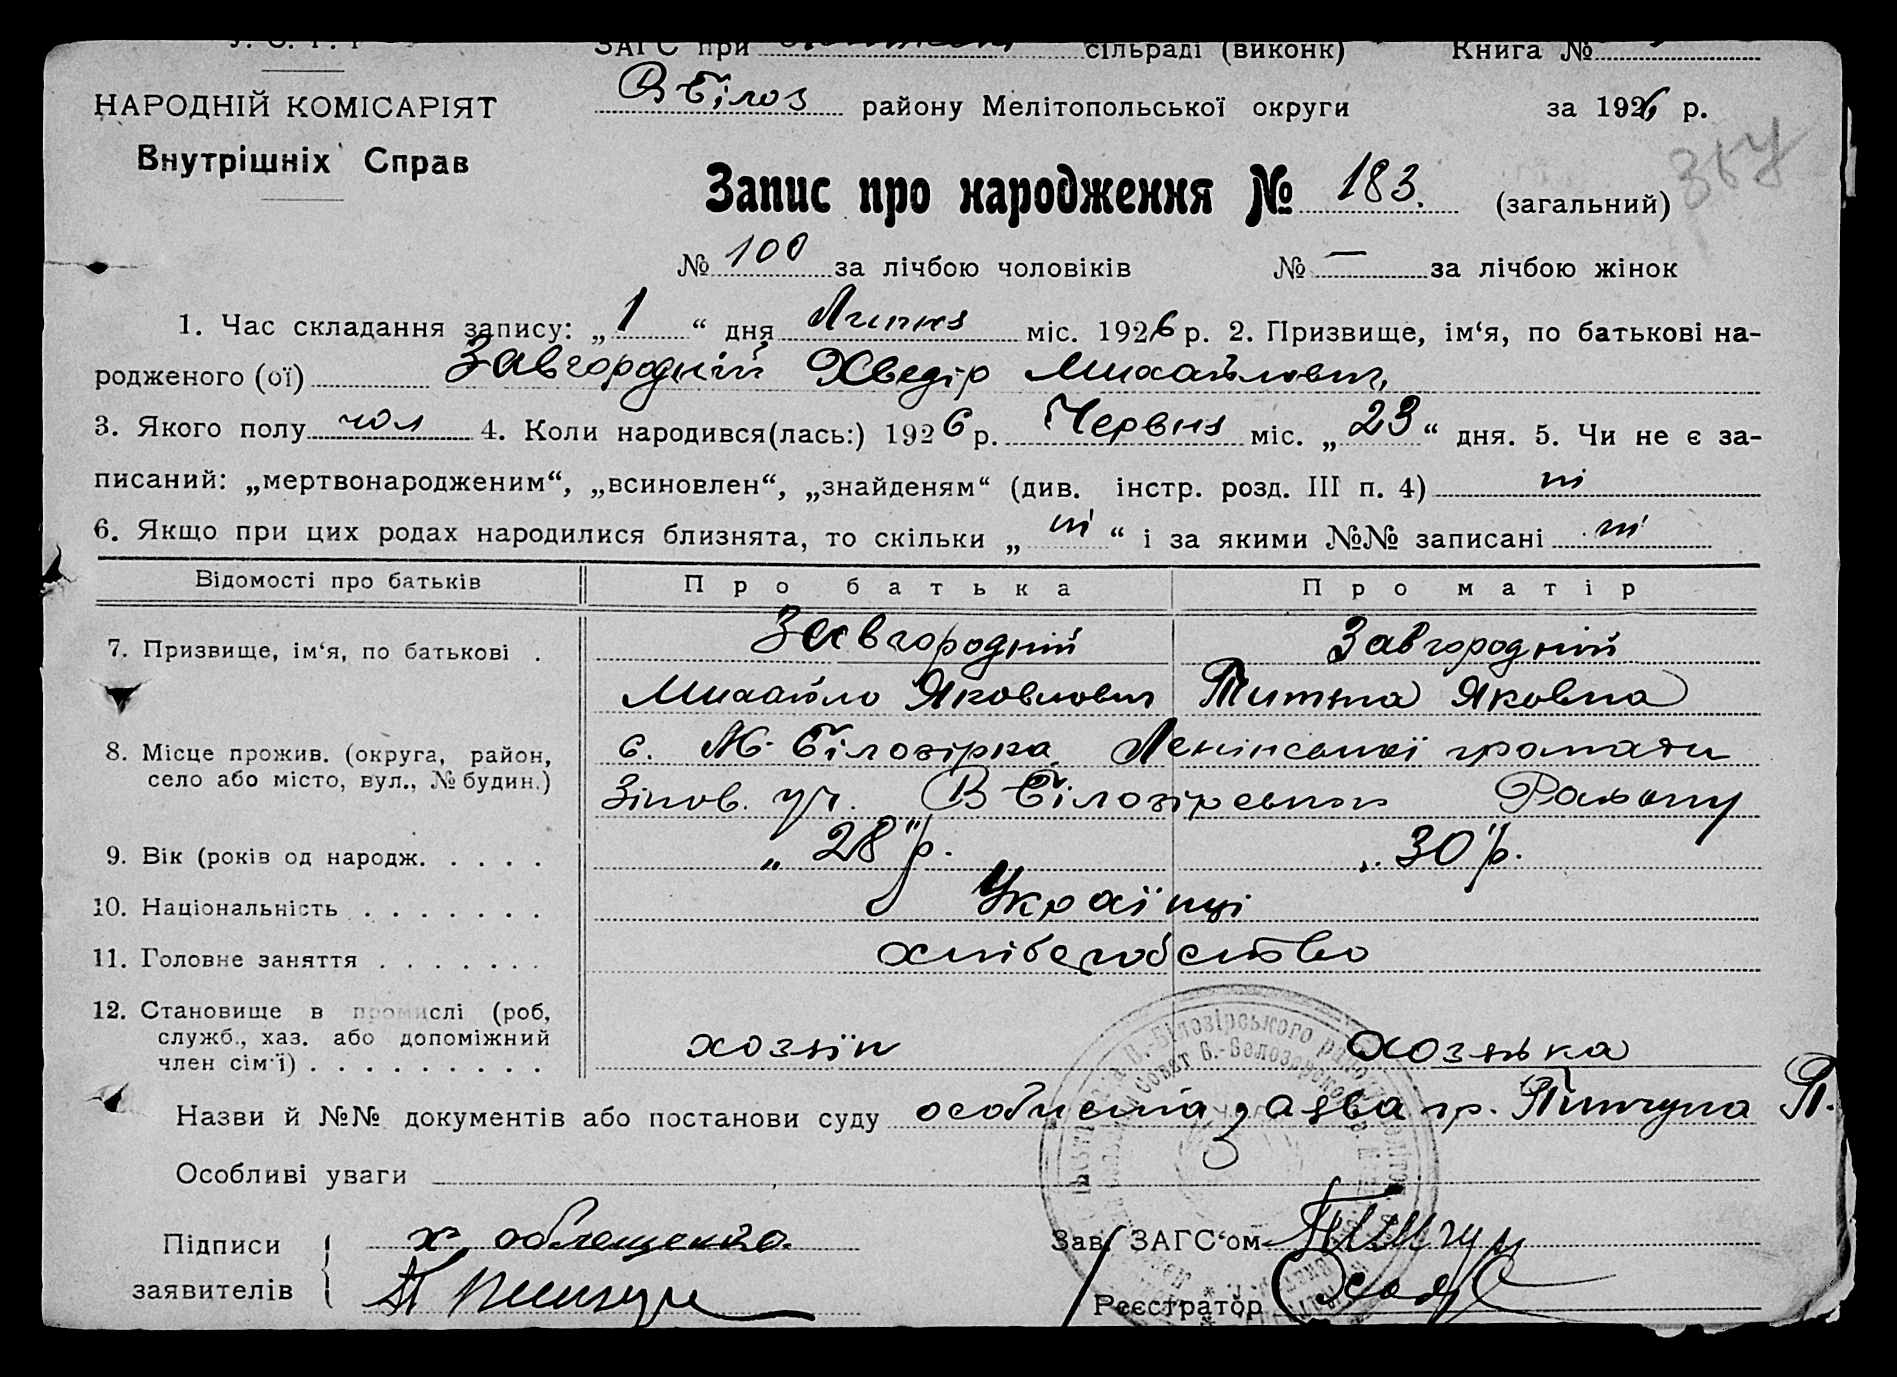 У. С. Р. Р
ЗАГС при сільраді (виконк) Книга №
В Білоз району Мелітопольської округи за 1926 р.
НАРОДНІЙ КОМІСАРІЯТ
Внутрішніх Справ
Запис про народження № 183. (загальний)
№ 100 за лічбою чоловіків № — за лічбою жінок
1. Час складання запису: „1“ дня Липня міс. 1926 р. 2. Призвище, ім‘я, по батькові на-
родженого (ої) Завгородній Хведір Михайлович
3. Якого полу чол 4. Коли народився(лась:) 1926 р. Червня міс. „23“ дня. 5. Чи не є за-
писаний: „мертвонародженим“, „всиновлен“, „знайденям“ (див. інстр. розд. III п. 4) ні
6. Якщо при цих родах народилися близнята, то скільки „ні“ і за якими №№ записані ні
Відомості про батьків Про батька Про матір
7. Призвище, ім‘я, по батькові . Завгородній Завгородній
Михайло Яковлович Яковна
8. Місце прожив. (округа, район, с. М. Білозірка Ленінської громади
село або місто, вул., № будин.) В Білозірського Району
9. Вік (років од народж. . . . . „28“ р. „30“ р.
10. Національність . . . . . . . Українці
11. Головне заняття . . . . . . . хліборобство
12. Становище в промислі (роб,
служб., хаз. або допоміжний хозяїн хозяйка
член сім‘ї) . . . . . . . . .
Назви й №№ документів або постанови суду особиста заява гр. Пинчука П.
Особливі уваги
Підписи Зав. ЗАГС‘ом Пинчук
заявителів П Пинчук Реєстратор